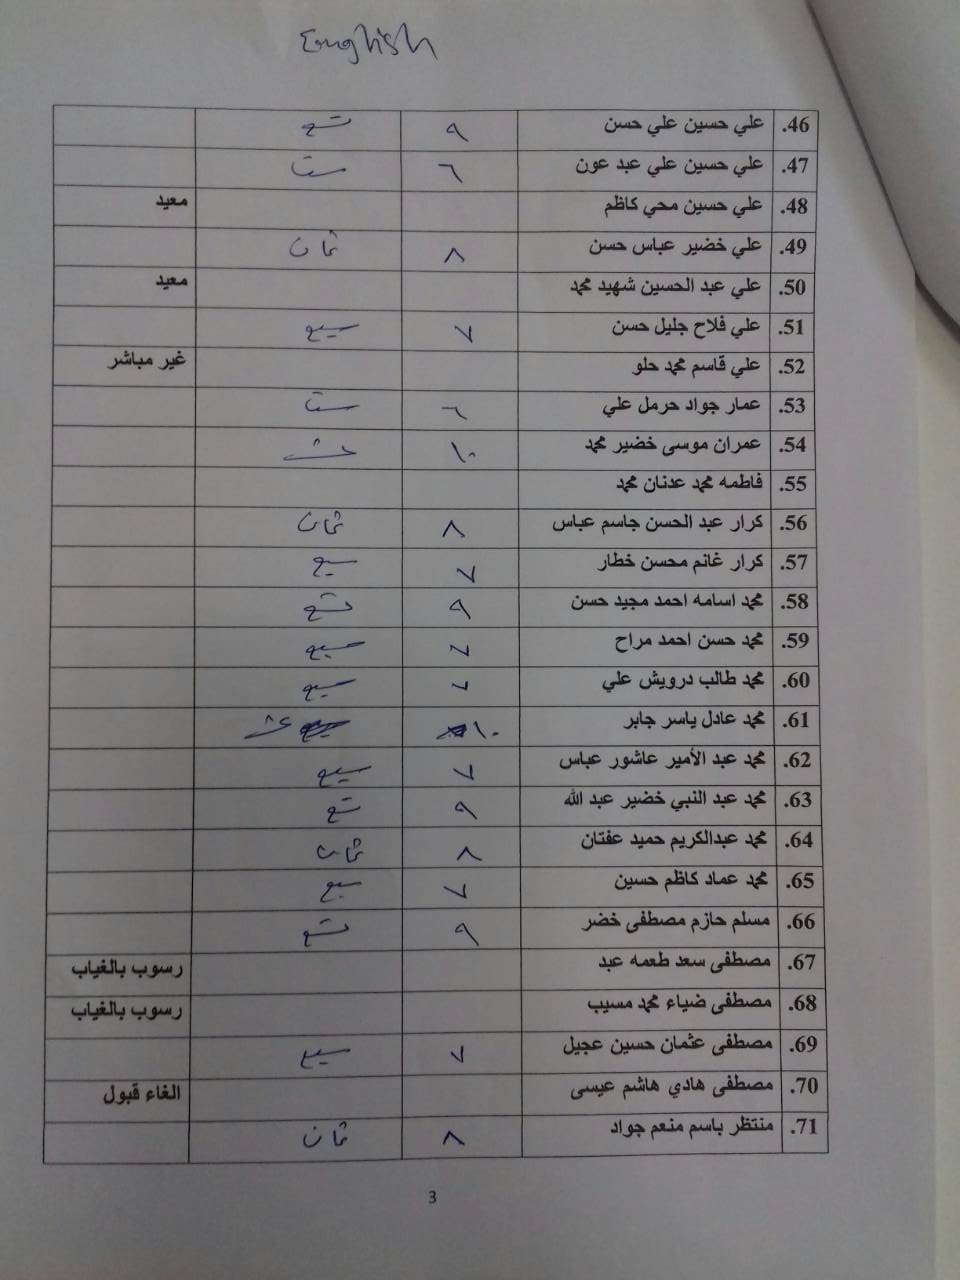 English
46. علي حسين علي حسن ٩ تسع
47. علي حسين علي عبد عون ٦ ست
48. علي حسين محي كاظم معيد
49. علي خضير عباس حسن ٨ ثمان
50. علي عبد الحسين شهيد محمد معيد
51. علي فلاح جليل حسن ٧ سبع
52. علي قاسم محمد حلو غير مباشر
53. عمار جواد حرمل علي ٦ ست
54. عمران موسى خضير محمد ١٠ عشر
55. فاطمه محمد عدنان محمد
56. كرار عبد الحسن جاسم عباس ٨ ثمان
57. كرار غانم محسن خطار ٧ سبع
58. محمد اسامه احمد مجيد حسن ٩ تسع
59. محمد حسن احمد مراح ٧ سبع
60. محمد طالب درويش علي ٧ سبع
61. محمد عادل ياسر جابر ١٠ عشر
62. محمد عبد الأمير عاشور عباس ٧ سبع
63. محمد عبد النبي خضير عبد الله ٩ تسع
64. محمد عبدالكريم حميد عفتان ٨ ثمان
65. محمد عماد كاظم حسين ٧ سبع
66. مسلم حازم مصطفى خضر ٩ تسع
67. مصطفى سعد طعمه عبد رسوب بالغياب
68. مصطفى ضياء محمد مسيب رسوب بالغياب
69. مصطفى عثمان حسين عجيل ٧ سبع
70. مصطفى هادي هاشم عيسى الغاء قبول
71. منتظر باسم منعم جواد ٨ ثمان
3